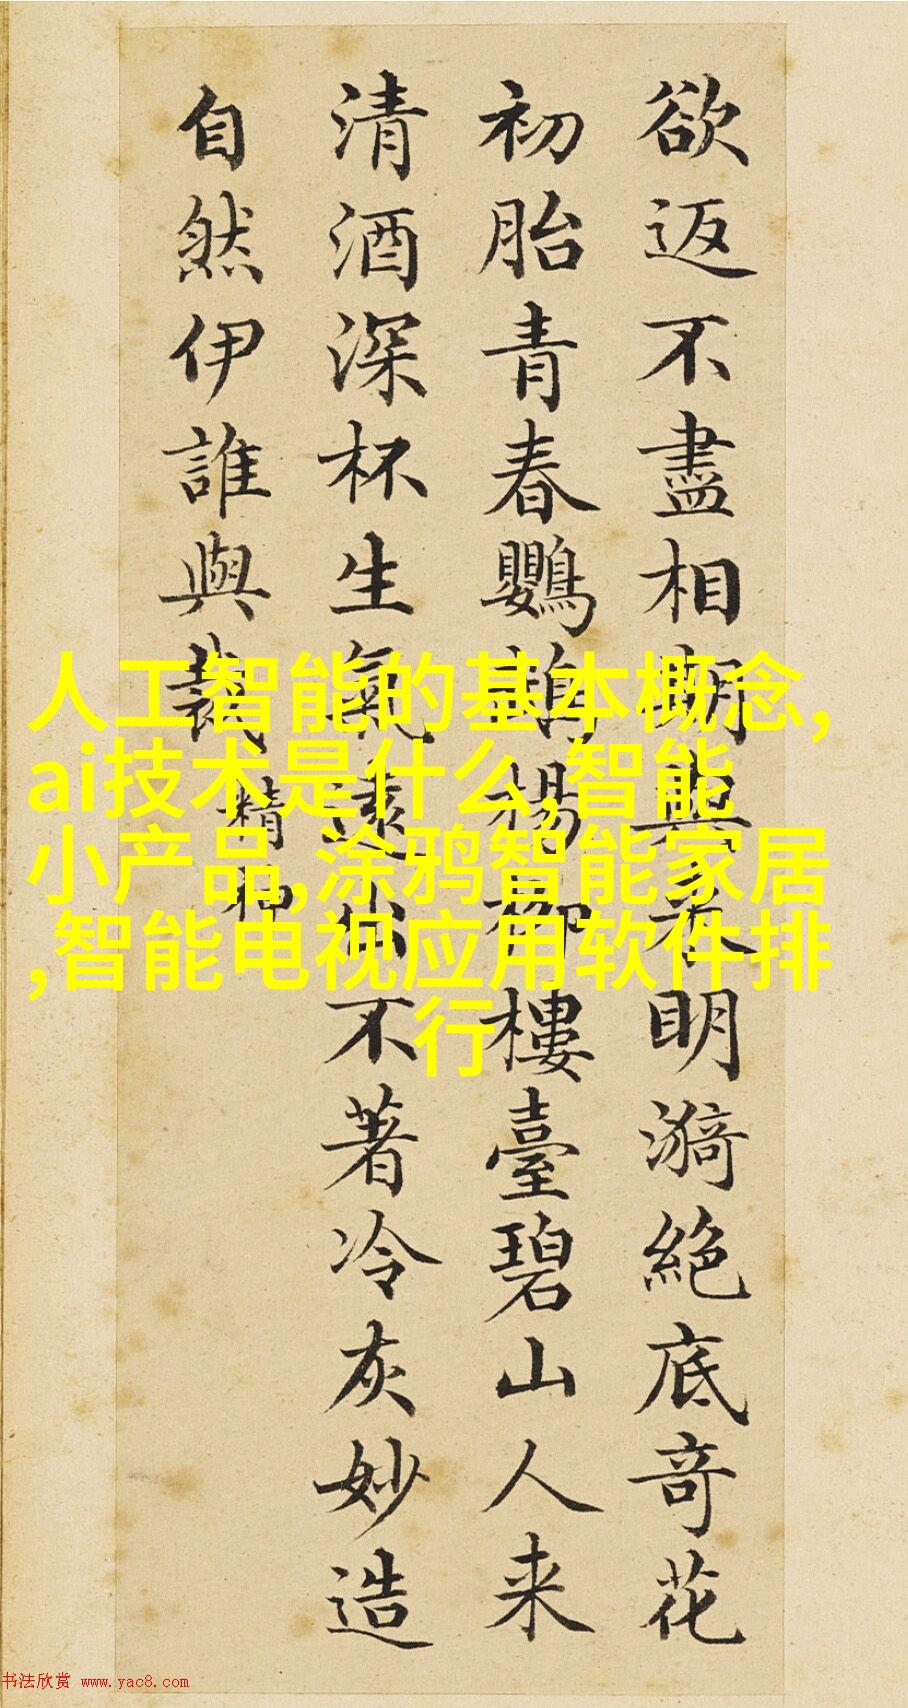 欲返不盡相期與来明漪絶底奇花
初胎青春鸚鵡楊柳樓臺碧山人来
清酒深杯生氣遠出不著冷灰妙造
自然伊誰與裁 精神
人工智能的基本概念,
ai技术是什么,智能
小产品,涂鸦智能家居
,智能电视应用软件排
行
书法欣赏 www.yac8.com